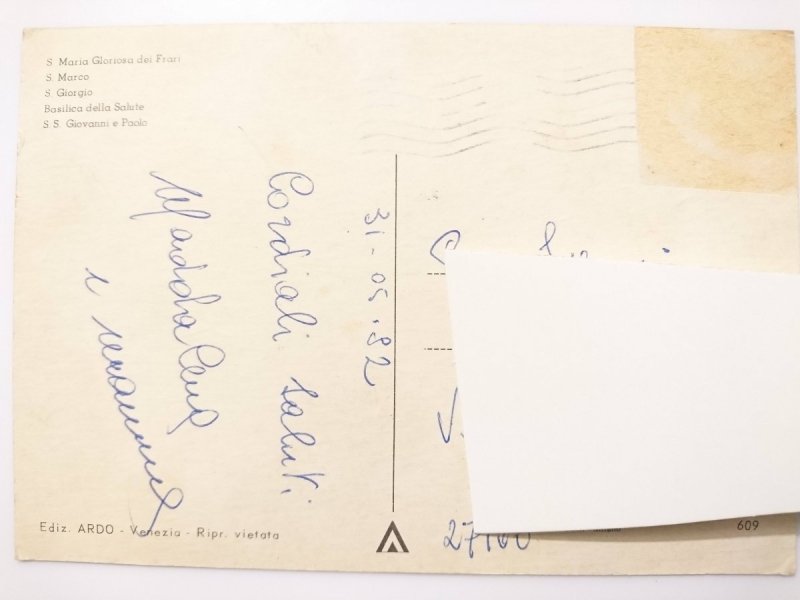 S. Maria Gloriosa dei Frari
S. Marco
S. Giorgio
Basilica della Salute
S.S. Giovanni e Paolo
31-05.92
Cordiali saluti
Maddalena
27100
Ediz. ARDO - Venezia - Ripr. vietata
609